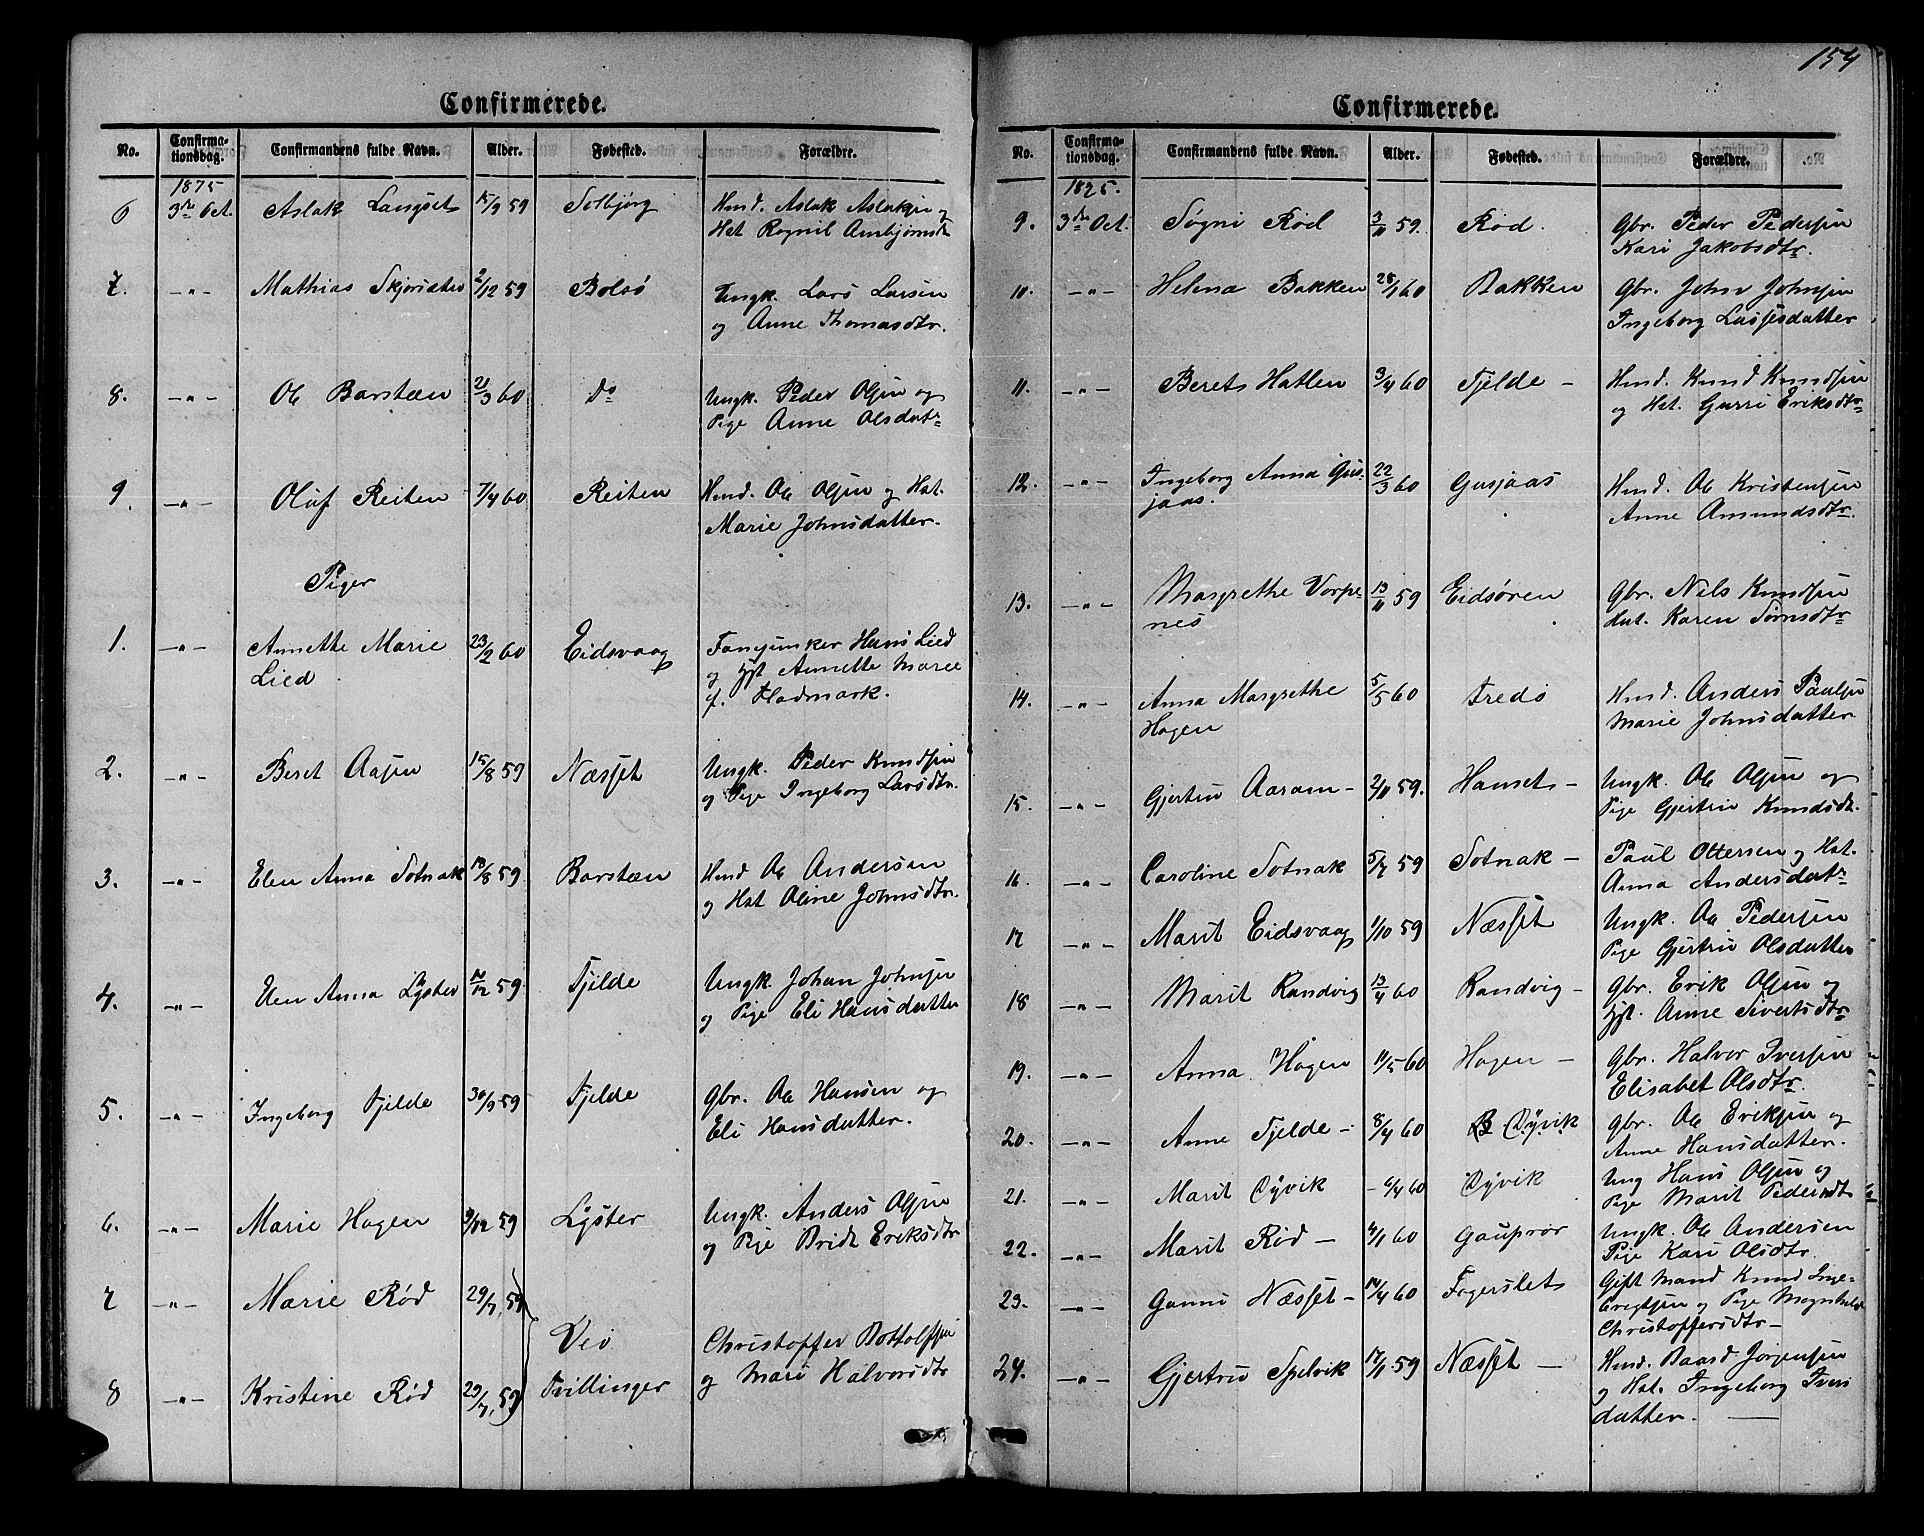 154
Confirmerede.
No. Confirma-tionsdag. Confirmandens fulde Navn. Alder. Fødested. Forældre.
1875
6 3die Oct. Aslak Langset 15/9 59 Solbjørg Hmd. Aslak Aslaksen og
Hst Rognil Arnbjørnsdtr
7. -"- Mathias Skjørsæter 2/12 59 Bolsø Ungk. Lars Larsen
og Anne Thomasdtr.
8. -"- Ole Barstæn 21/3 60 Do Ungk. Peder Olsen og
Pige Anne Olsdatr
9. -"- Oluf Reiten 7/4 60 Reiten Hmd. Ole Olsen og Hst.
Marie Johnsdatter.
Piger
1. -"- Annette Marie 23/2 60 Eidsvaag Fanejunker Hans Lied
Lied og Hst Annette Marie
f. Hadmark.
2. -"- Beret Aasen 15/8 59 Næsset Ungk. Peder Knudsen
og Pige Ingeborg Larsdtr.
3. -"- Elen Anna Sotnak 13/8 59 Barstæn Hmd Ole Andersen
og Hst Oline Johnsdtr.
4. -"- Elen Anna Lyster /12 59 Tjelde Ungk. Johan Johnsen
og Pige Eli Hansdatter
5. -"- Ingeborg Tjelde 30/9 59 Tjelde Gbr. Ole Hansen og
Eli Hansdatter.
6. -"- Marie Hagen 9/12 59 Lyster Ungk. Anders Olsen
og Pige Bridt Eriksdtr
7 -"- Marie Rød 29/7, 59
Veø Christoffer Bottolfsen
8 -"- Kristine Rød 29/7, 59 Tvillinger og Mari Halvorsdtr
Confirmerede.
No. Confirma-tionsdag. Confirmandens fulde Navn. Alder. Fødested. Forældre.
1875.
9. 3die Oct. Søgni Rød 3/11 59. Rød. Gbr. Peder Pedersen
Kari Jakobsdtr.
10. -"- Helena Bakken 28/1 60 Bakken Gbr. John Johnsen
Ingeborg Lassesdatter
11. -"- Beret Hatlen 3/4 60 Tjelde - Hmd. Knud Knudsen
og Hst. Gurri Eriksdtr
12. -"- Ingeborg Anna Gus- 22/3 60 Gusjaas Hmd. Ole Kristensen
jaas. Anne Amundsdtr.
13. -"- Margrethe Vorpe- 13/11 59 Eidsøren Gbr. Nils Knudsen
nes Hst. Karen Tømsdtr
14. -"- Anna Margrethe 5/5 60 Fredø Hmd. Anders Paulsen
Hagen Marie Johnsdatter
15. -"- Gjertru Aaram - 2/11 59. Hanset - Ungk. Ole Olsen og
Pige Gjertru Knudsdtr.
16. -"- Caroline Sotnak 5/7 59 Sotnak - Paul Ottersen og Hst.
Anna Andersdatr
17 -"- Marit Eidsvaag 1/10 59 Næsset Ungk. Ole Pedersen
Pige Gjertru Olsdatter
18 -"- Marit Randvig 13/4 60 Randvig - Gbr. Erik Olsen og
Hst. Anne Sivertsdtr
19. -"- Anna Hagen 11/5 60 Hagen - Gbr. Halvor Iversen
Elisabet Olsdtr.
20. -"- Anne Tjelde - 8/4 60 B Dyvik Gbr. Ole Eriksen og
Anne Hansdatter.
21. -"- Marit Dyvik - 6/4 60 Dyvik Ung Hans Olsen og
Pige Marit Pedersdt
22. -"- Marit Rød - 4/1 60 Gauprør Ungk. Ole Andersen
Pige Kari Olsdtr.
23. -"- Gunni Næsset - 14/4 60 Fagerslet Gift Mand Knud Inge-
brigtsen og Pige Magnhild
Christoffersdtr -
24. -"- Gjertru Spelvik 17/11 59 Næsset - Hmd. Baard Jørgensen
og Hst. Ingeborg Ivers
datter. -